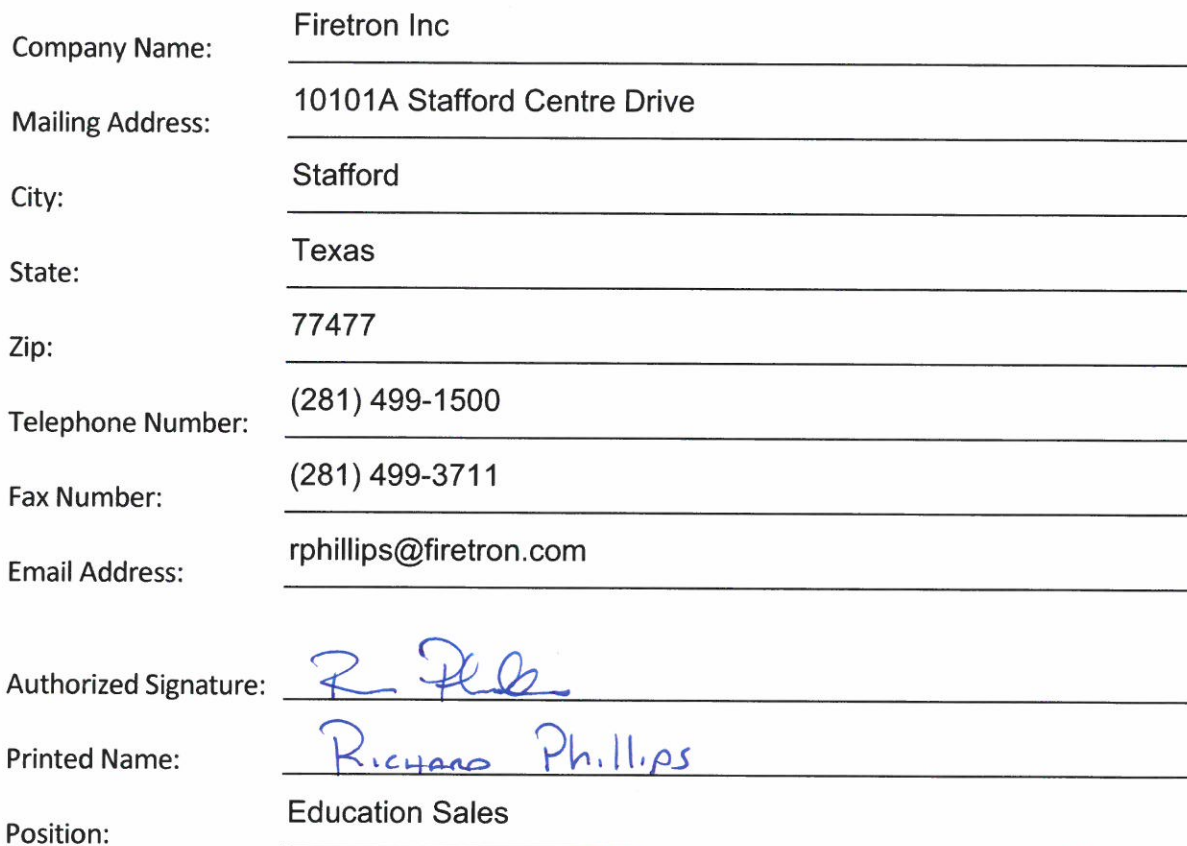 Company Name: Firetron Inc
Mailing Address: 10101A Stafford Centre Drive
City: Stafford
State: Texas
Zip: 77477
Telephone Number: (281) 499-1500
Fax Number: (281) 499-3711
Email Address: rphillips@firetron.com
Authorized Signature:
Printed Name: Richard Phillips
Position: Education Sales